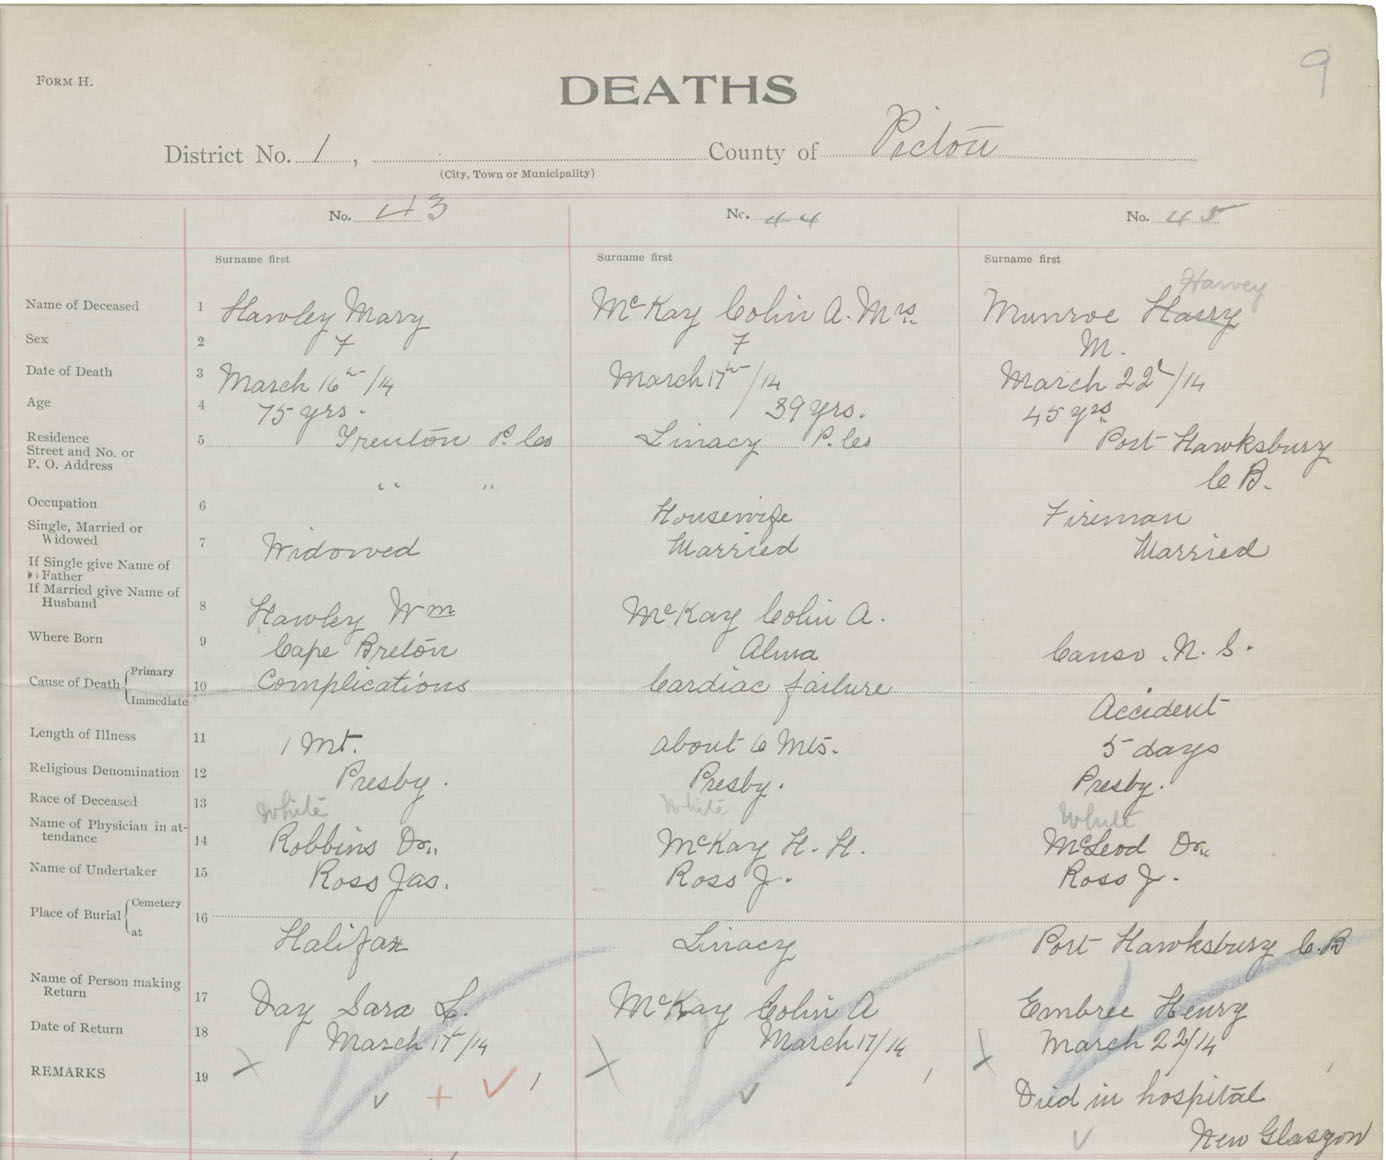 9
FORM H.
DEATHS
District No. 1, County of Pictou
(City, Town or Municipality)
No. 43 No. 44 No. 45
Surname first Surname first Surname first
Harvey
Name of Deceased 1 Hawley Mary McKay Colin A. Mrs. Munroe Harry
Sex 2 F F M.
Date of Death 3 March 16th/14 March 17th/14 March 22d/14
Age 4 75 yrs. 39 yrs. 45 yrs
Residence 5 Trenton P. Co Linacy P. Co Port Hawksbury
Street and No. or
P. O. Address
" " C B.
Occupation 6 Housewife Fireman
Single, Married or
Widowed 7 Widowed Married Married
If Single give Name of
Father
If Married give Name of
Husband 8 Hawley Wm McKay Colin A.
Where Born 9 Cape Breton Alma Canso. N. S.
Cause of Death { Primary 10 Complications Cardiac failure
Immediate Accident
Length of Illness 11 1 Mt. about 6 Mts. 5 days
Religious Denomination 12 Presby. Presby. Presby.
Race of Deceased 13 White White White
Name of Physician in at-
tendance 14 Robbins Dr. McKay H. H. McLeod Dr.
Name of Undertaker 15 Ross Jas. Ross J. Ross J.
Place of Burial { Cemetery 16
at Halifax Linacy Port Hawksbury C.B
Name of Person making
Return 17 Day Sara L. McKay Colin A Embree Henry
Date of Return 18 March 17th/14 March 17/14 March 22/14
REMARKS 19 Died in hospital
New Glasgow